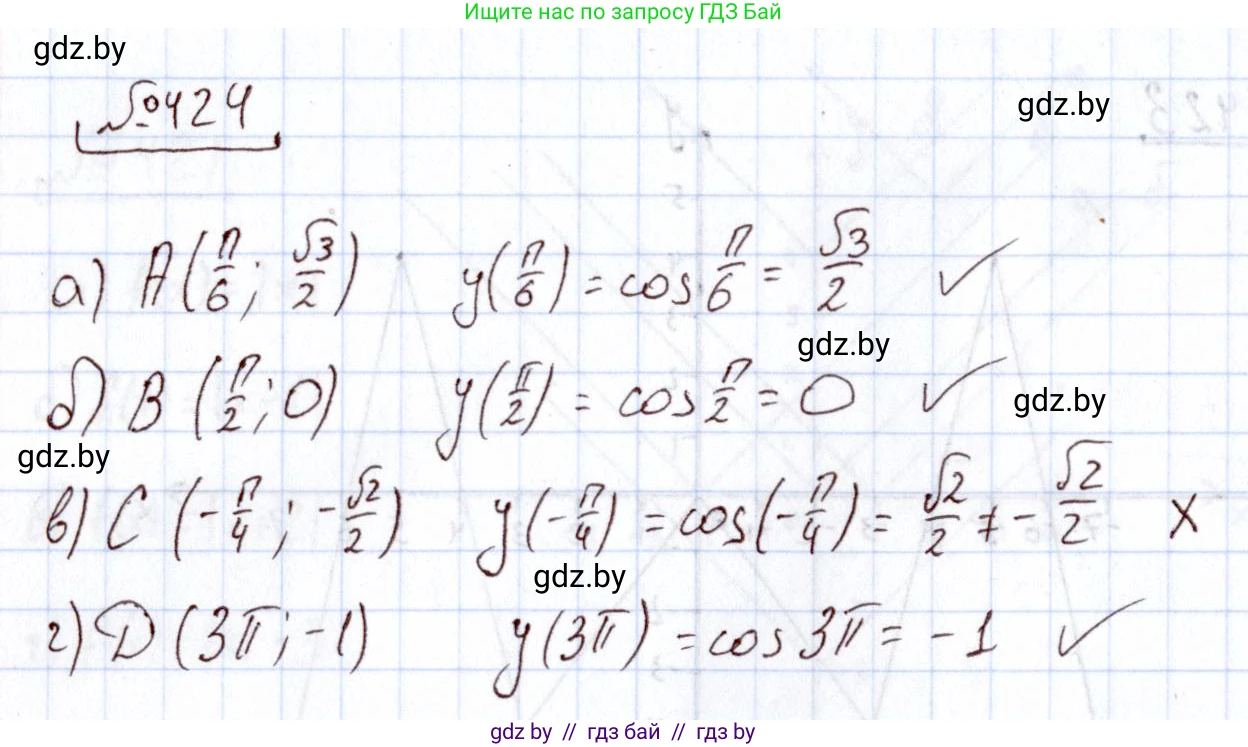 Ищите нас по запросу ГДЗ Бай
gdz.by
№424
gdz.by
а) A(π/6; √3/2) y(π/6) = cos π/6 = √3/2 ✓
gdz.by
б) B (π/2; 0) y(π/2) = cos π/2 = 0 ✓
gdz.by
gdz.by
в) C (-π/4; -√2/2) y(-π/4) = cos(-π/4) = √2/2 ≠ -√2/2 X
gdz.by
г) D (3π; -1) y(3π) = cos 3π = -1 ✓
gdz.by // гдз бай // гдз by